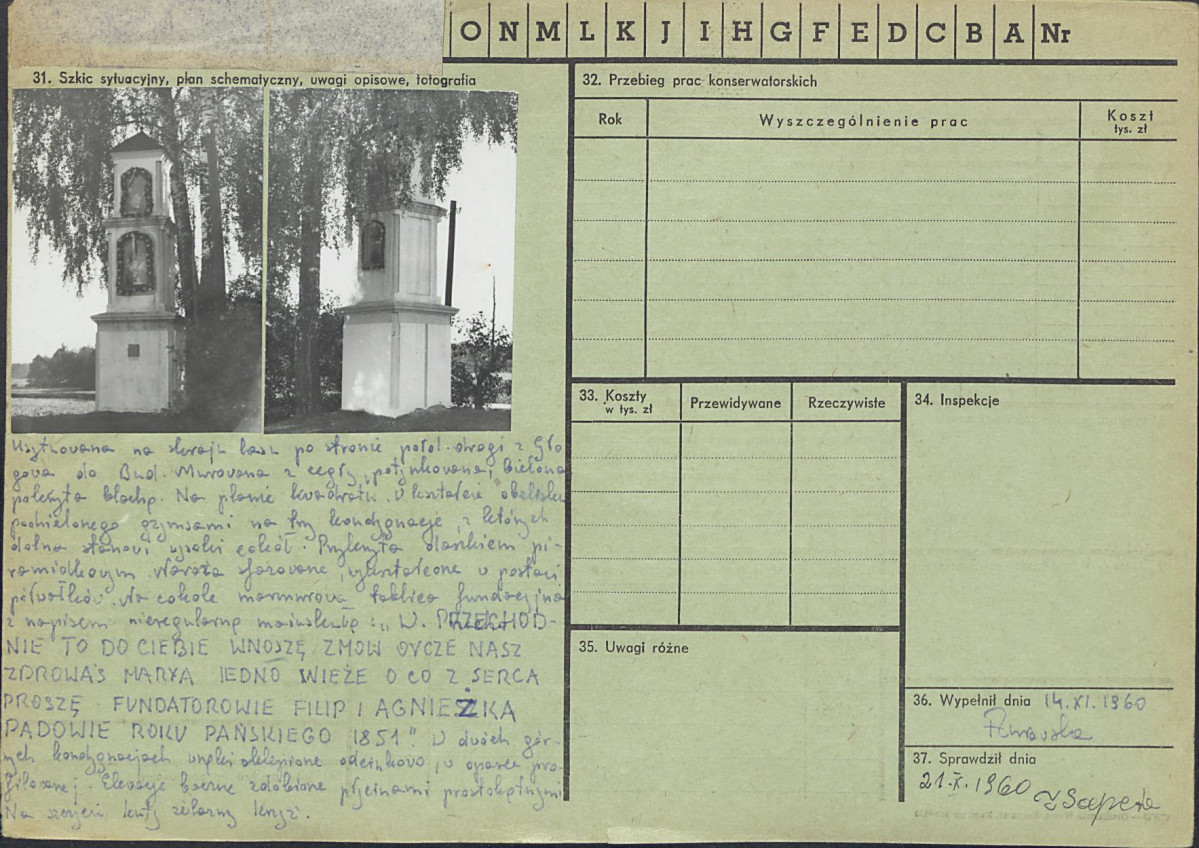 O N M L K J I H G F E D C B A Nr
31. Szkic sytuacyjny, plan schematyczny, uwagi opisowe, fotografia
Usytuowana na skraju lasu po stronie połd. drogi z Gło-
gowa do Bud. Murowana z cegły, potynkowana, bielona
pokryta blachą. Na planie kwadratu w kształcie obelisku
podzielonego gzymsami na trzy kondygnacje, z których
dolna stanowi wysoki cokół. Przykryta daszkiem pi-
ramidkowym. Naroża fazowane, wykształcone w postaci
półwałków. Na cokole marmurowa tablica fundacyjna
z napisem nieregularną majuskułą: „W. PRZECHOD-
NIE TO DO CIEBIE WNOSZĘ ZMOW OYCZE NASZ
ZDROWAŚ MARYA IEDNO WIEŻE O CO Z SERCA
PROSZĘ FUNDATOROWIE FILIP I AGNIEŻKA
PADOWIE ROKU PAŃSKIEGO 1851" W dwóch gór-
nych kondygnacjach wnęki sklepione odcinkowo, w oprawie pro-
filowanej. Elewacje boczne zdobione płycinami prostokątnymi.
Na szczycie kuty żelazny krzyż.
32. Przebieg prac konserwatorskich
Rok Wyszczególnienie prac Koszt tys. zł
33. Koszty w tys. zł Przewidywane Rzeczywiste
34. Inspekcje
35. Uwagi różne
36. Wypełnił dnia 14.XI.1960
37. Sprawdził dnia
21.X.1960